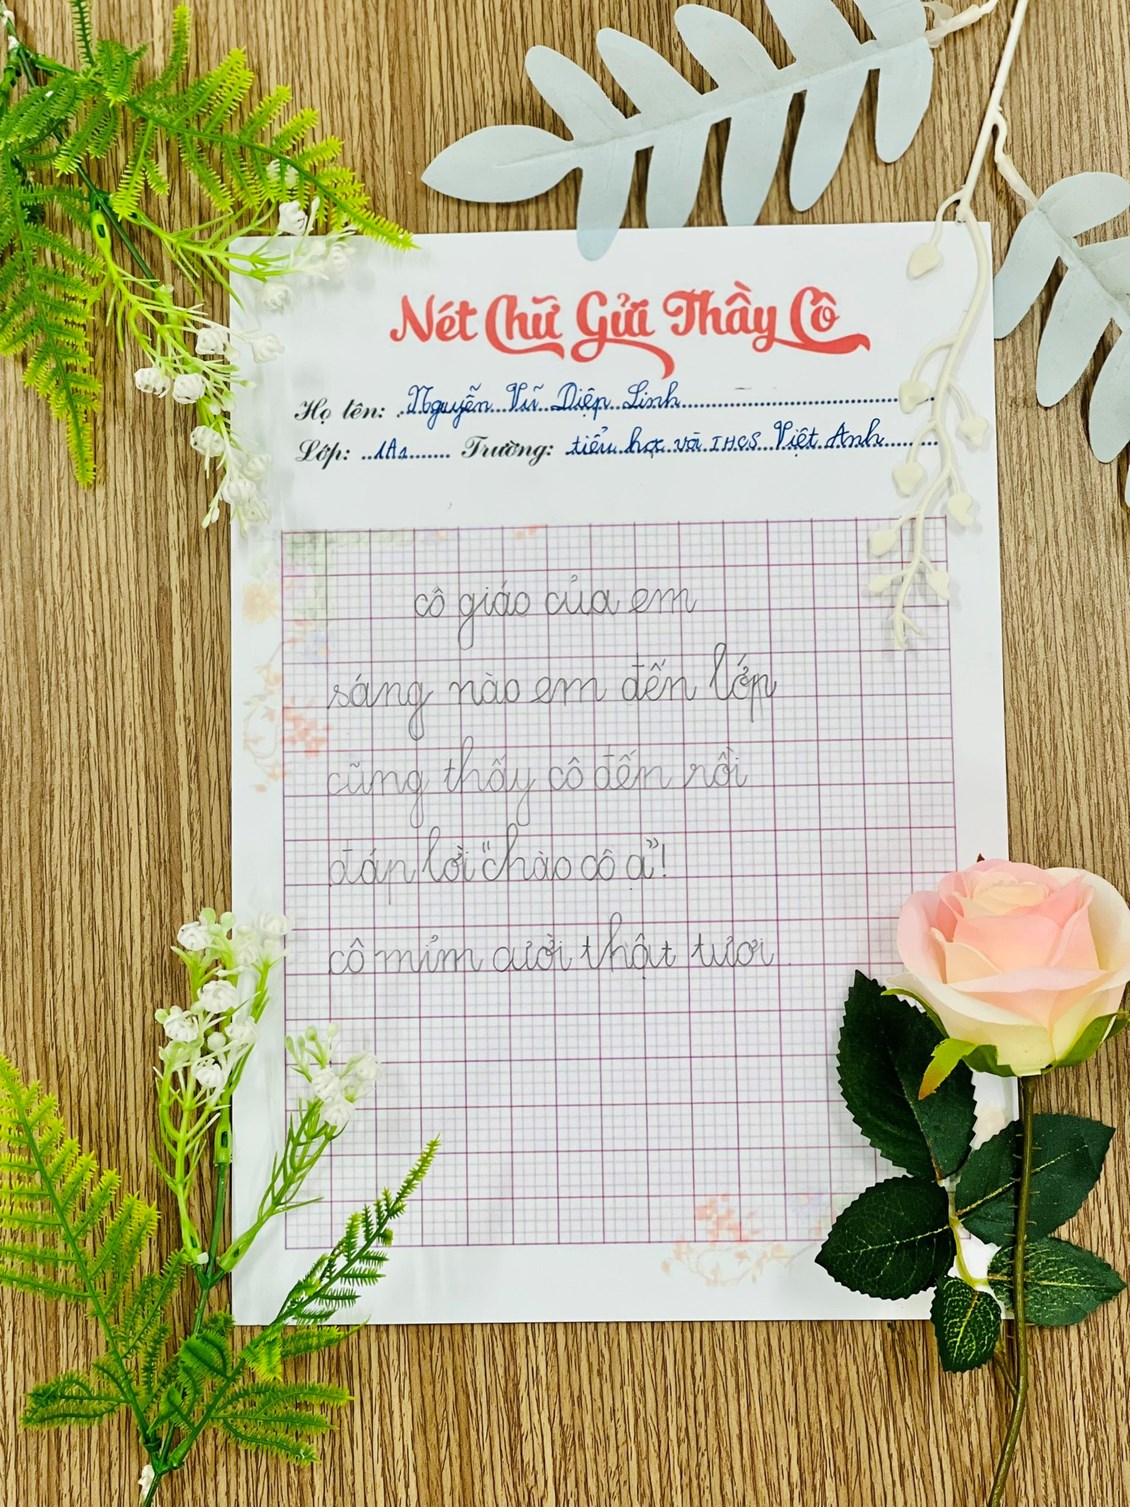 Nét Chữ Gửi Thầy Cô
Họ tên: Nguyễn Vũ Diệp Linh
Lớp: 1A1 Trường: tiểu học và THCS Việt Anh
cô giáo của em
sáng nào em đến lớp
cũng thấy cô đến rồi
đáp lời "chào cô ạ"!
cô mỉm cười thật tươi